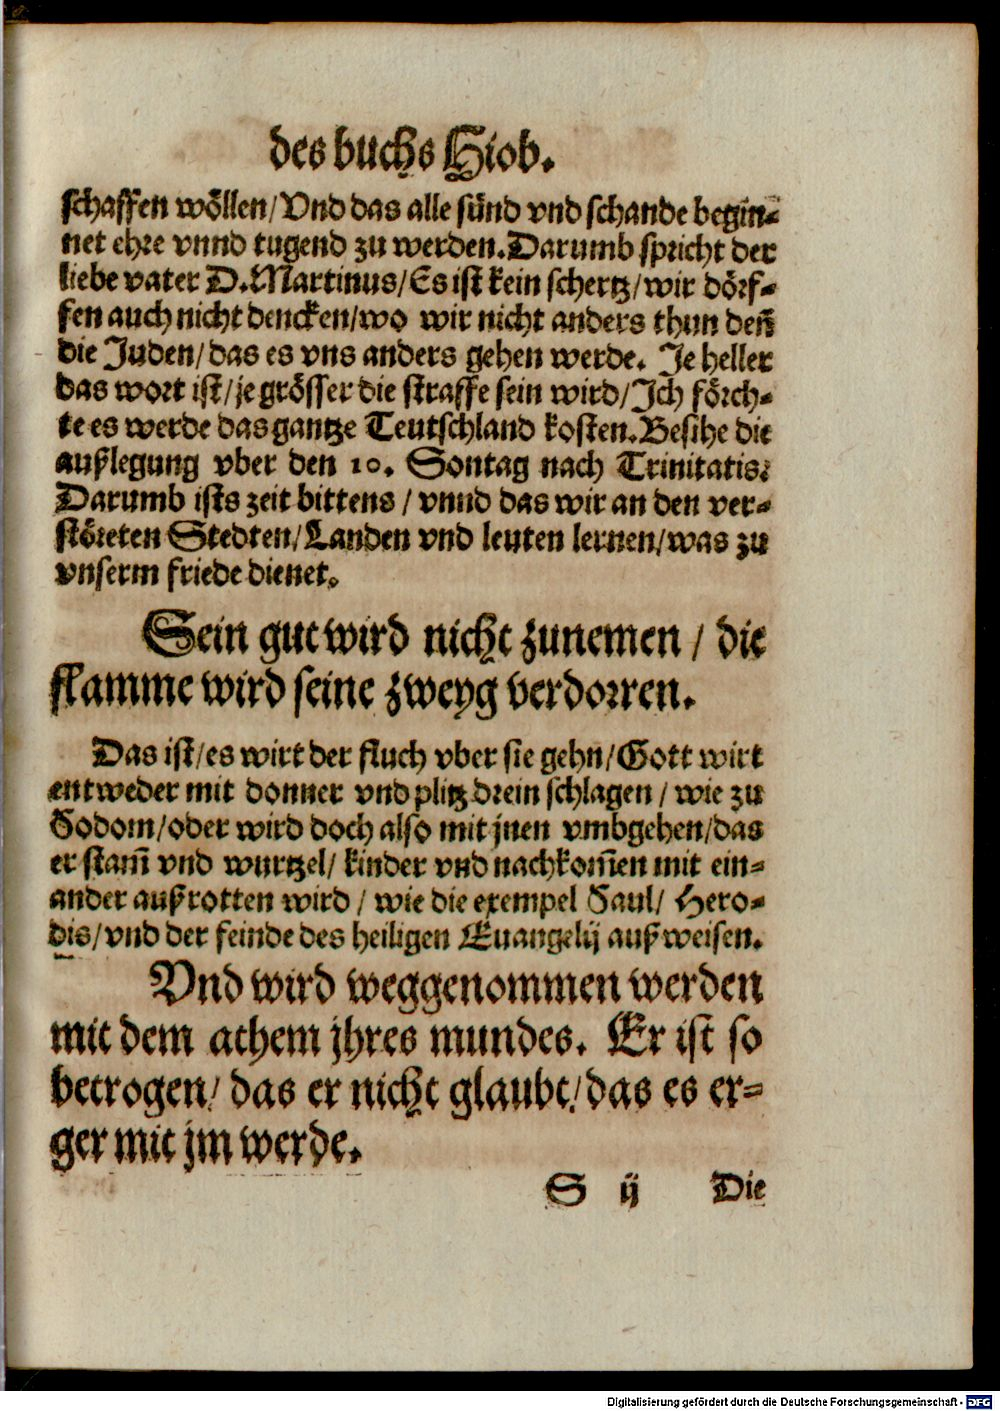 des buchs Hiob.
schaffen wöllen/Vnd das alle sünd vnd schande begin-
net ehre vnnd tugend zu werden.Darumb spricht der
liebe vater D.Martinus/Es ist kein schertz/wir dörf-
fen auch nicht dencken/wo wir nicht anders thun deñ
die Juden/das es vns anders gehen werde. Je heller
das wort ist/je grösser die straffe sein wird/Ich förch-
te es werde das gantze Teutschland kosten.Besihe die
außlegung vber den 10. Sontag nach Trinitatis:
Darumb ists zeit bittens/vnnd das wir an den ver-
störeten Stedten/Landen vnd leuten lernen/was zu
vnserm friede dienet.
Sein gut wird nicht zunemen/die
flamme wird seine zweyg verdorren.
Das ist/es wirt der fluch vber sie gehn/Gott wirt
entweder mit donner vnd plitz drein schlagen/wie zu
Sodom/oder wird doch also mit jnen vmbgehen/das
er stam̃ vnd wurtzel/kinder vnd nachkom̃en mit ein-
ander außrotten wird/wie die exempel Saul/Hero-
dis/vnd der feinde des heiligen Euangelij außweisen.
Vnd wird weggenommen werden
mit dem athem jhres mundes. Er ist so
betrogen/das er nicht glaubt/das es er-
ger mit jm werde.
S ij Die
Digitalisierung gefördert durch die Deutsche Forschungsgemeinschaft - DFG